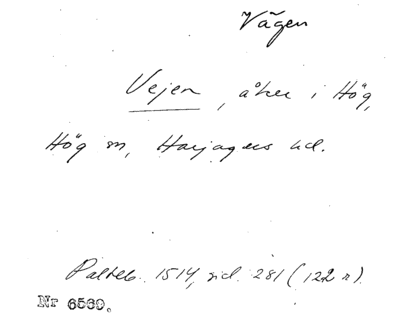 Vägen
Vejen, åker i Hög,
Hög sn, Harjagers hd.
Palteb. 1514, sid. 281 (122 r).
Nr 6569.